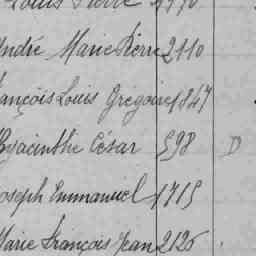 Louis Pierre
André Marie Pierre 2110
François Louis Grégoire 1847
Hyacinthe César 598 D
Joseph Emmanuel 1715
Marie François Jean 2126